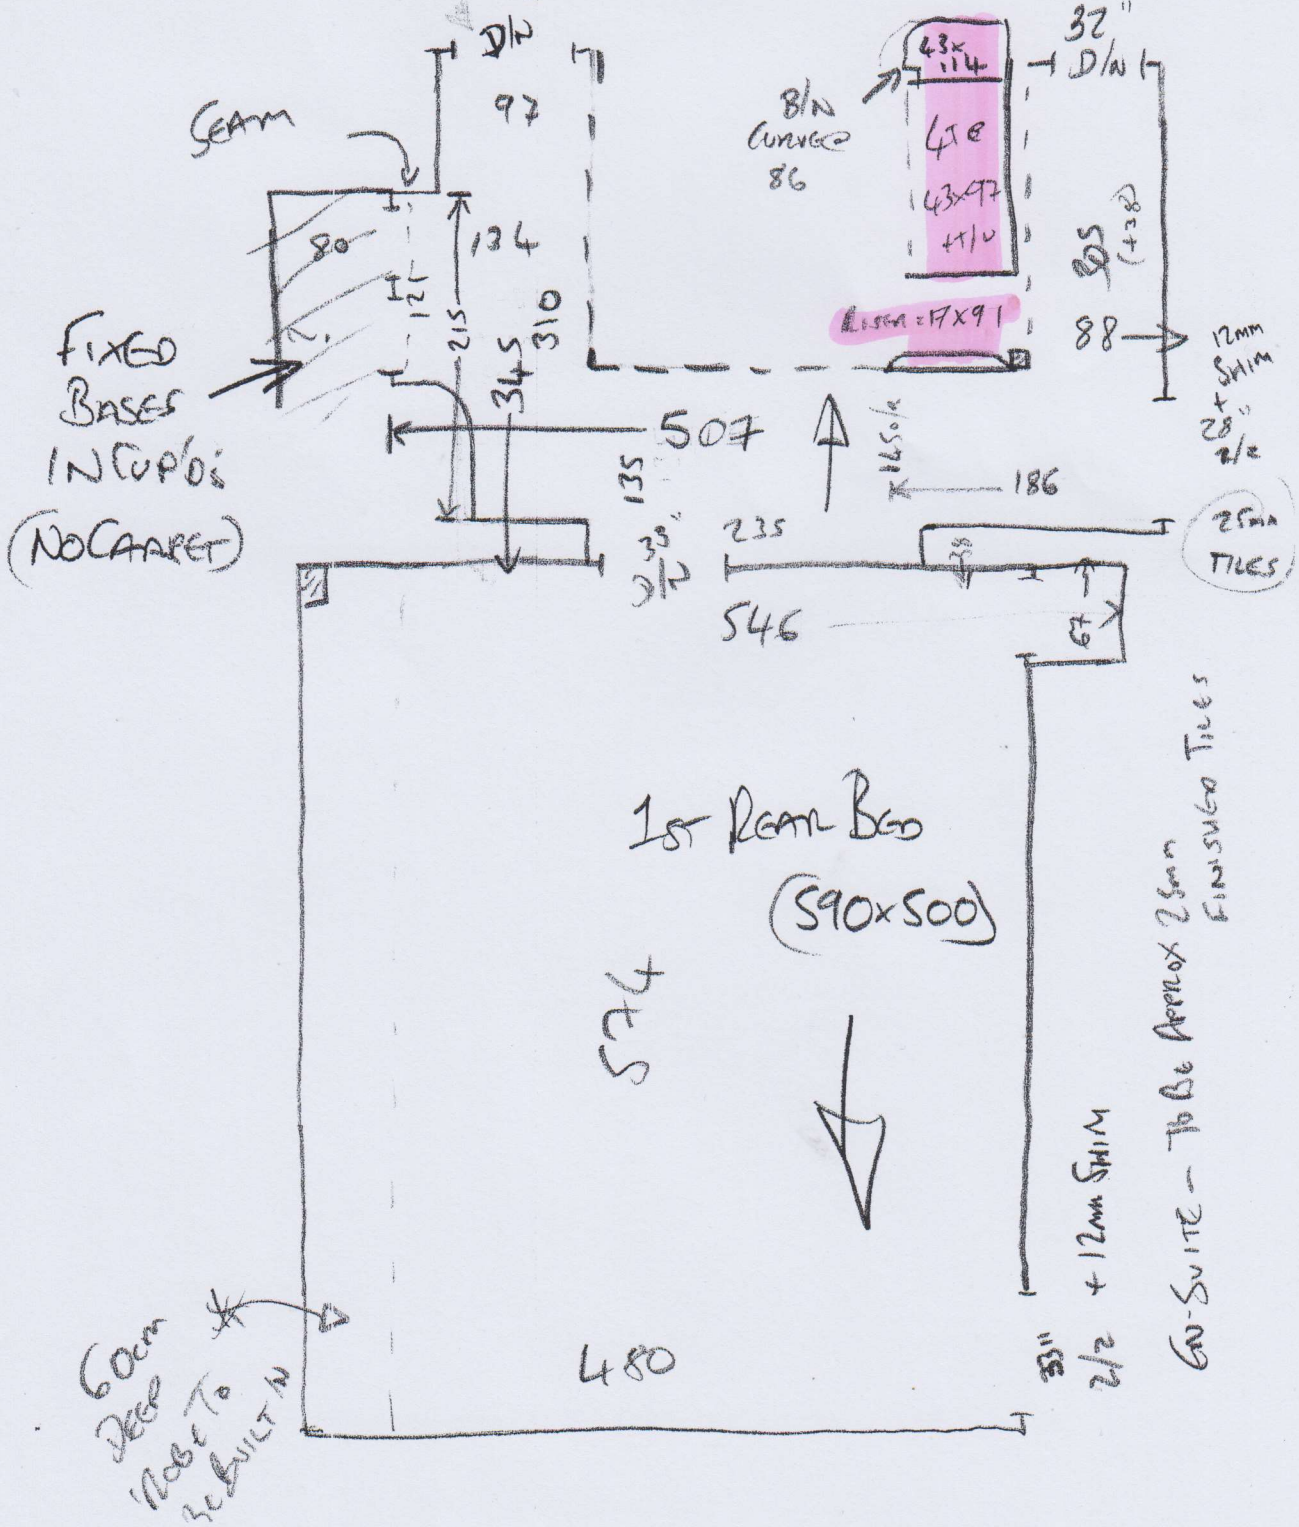 D/N
97
SEAM
80
134
121
215
345
310
FIXED
BASES
IN CUP'DS
(NO CARPET)
507
135
33"
D/N
235
546
43x
114
B/N
CURVED
86
43x97
+T/U
RISER = 17x91
32"
D/N
(+38)
88
12mm
SHIM
+
28"
2/2
186
25mm
TILES
67
1ST REAR BED
(590x500)
574
480
60cm
DEEP
'ROBE TO
BE BUILT IN
33"
2/2 + 12mm SHIM
EN-SUITE - TO BE APPROX 25mm
FINISHED TILES